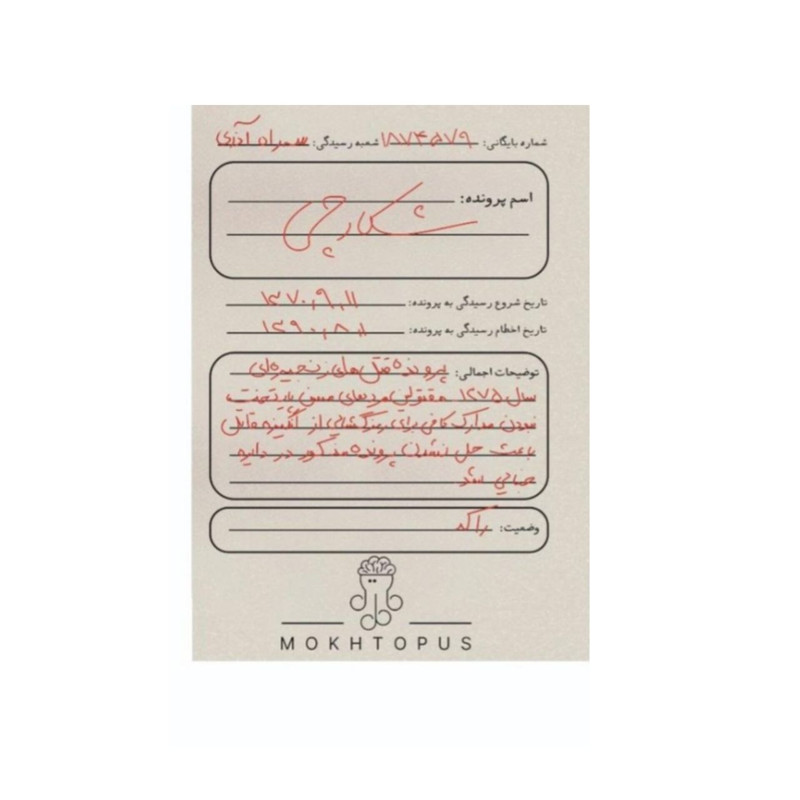 شماره بایگانی: ۱۸۷۴۵۷۹ شعبه رسیدگی:
اسم پرونده:
شکارچی
تاریخ شروع رسیدگی به پرونده: ۱۳۷۰,۹,۱۱
تاریخ اخطام رسیدگی به پرونده: ۱۳۹۰,۸,۱۱
توضیحات اجمالی: پرونده قتل های زنجیره‌ای
سال ۱۳۷۵ مقتولین مردهای مسن پایتخت
نبودن مدارک کافی برای رمزگشایی از انگیزه قاتل
باعث حل نشدن پرونده مذکور در دایره
جنایی شد
وضعیت: راکد
MOKHTOPUS